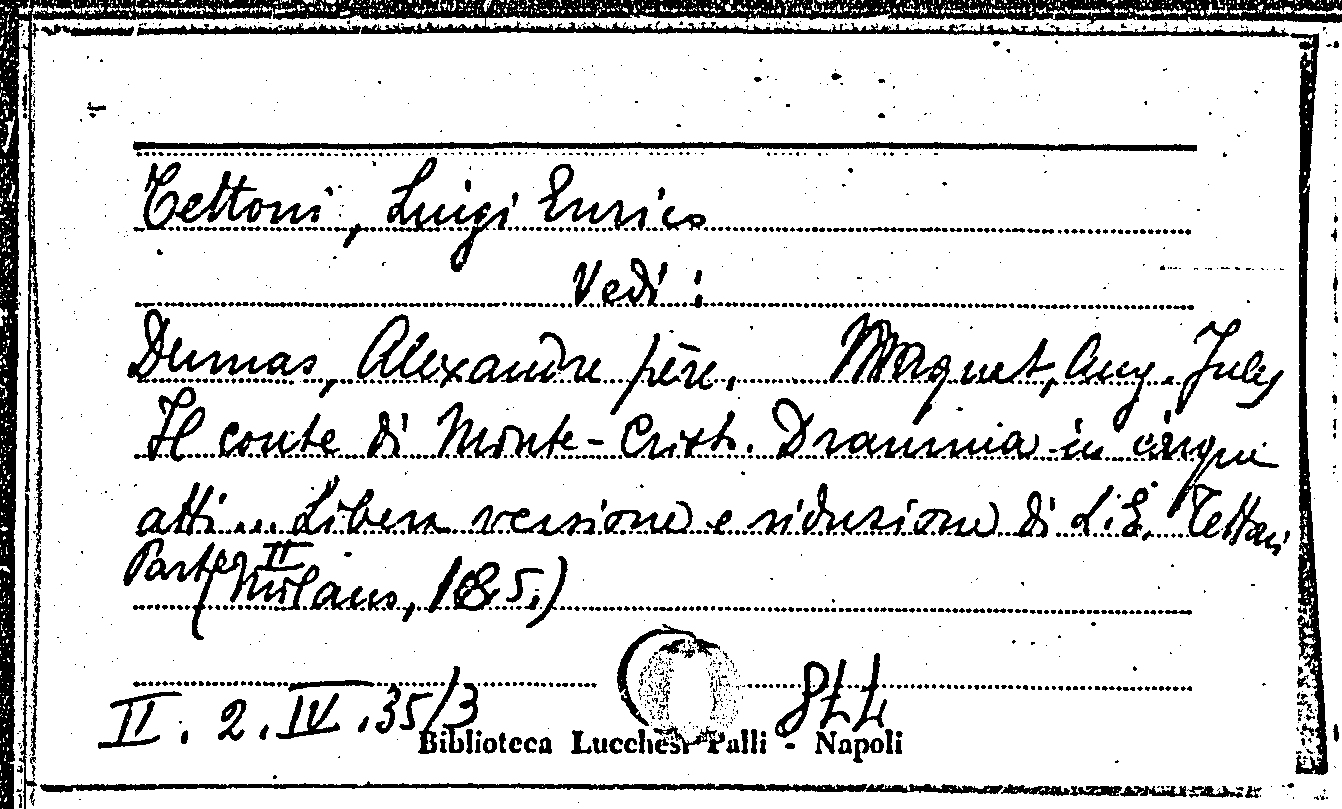 Tettoni, Luigi Enrico
Vedi :
Dumas, Alexandre père. Maquet, Aug. Jules
Il conte di Monte-Cristo. Dramma in cinque
atti... Libera versione e riduzione di L. E. Tettoni
Parte II
(Milano, 185.)
II. 2. IV. 35/3
Biblioteca Lucchesi Palli - Napoli